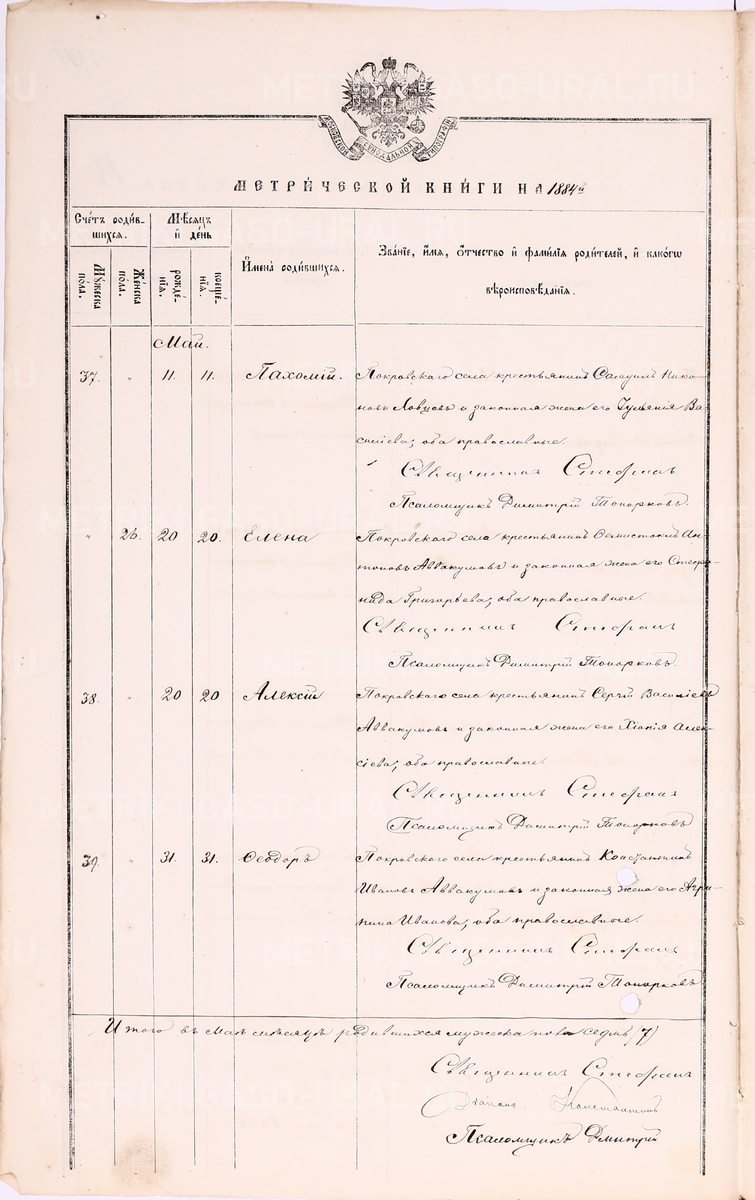 МОСКОВСКОЙ СѴНОДАЛЬНОЙ ТИПОГРАФІИ
МЕТРИ́ЧЕСКОЙ КНИ́ГИ НА 1884й
Сче́тъ роди́в-
шихся.
Мѣ́сяцъ
и҆ де́нь
И҆мена̀ роди́вшихся.
Зва́нїе, и҆́мя, ѻ҆́тчество и҆ фами́лїя роди́телей, и҆ како́гѡ
вѣроисповѣ́данїя.
Мꙋ́жеска по́ла.
Же́нска по́ла.
рожде́-нїя.
креще́-нїя.
Май.
37. " 11. 11. Пахомій. Покровскаго села крестьянинъ Самуилъ Нико-
новъ Ловцовъ и законная жена его Іуліянія Ва-
силіева, оба православные.
Священникъ Стефанъ
Псаломщикъ Димитрій Топорковъ.
" 26. 20 20. Елена Покровскаго села крестьянинъ Феликтистъ Ан-
тоновъ Аввакумовъ и законная жена его Стефа-
нида Григорьева, оба православные.
Священникъ Стефанъ
Псаломщикъ Димитрій Топорковъ.
38. " 20 20 Алексій Покровскаго села крестьянинъ Сергій Василіевъ
Аввакумовъ и законная жена его Хіонія Алек-
сіева, оба православные.
Священникъ Стефанъ
Псаломщикъ Димитрій Топорковъ
39. " 31. 31. Ѳеодоръ Покровскаго села крестьянинъ Константинъ
Ивановъ Аввакумовъ и законная жена его Агри-
пина Иванова, оба православные.
Священникъ Стефанъ
Псаломщикъ Димитрій Топорковъ
Итого въ маѣ мѣсяцѣ родившихся мужеска пола седмь (7)
Священникъ Стефанъ
Діаконъ Константинъ
Псаломщикъ Дмитрій